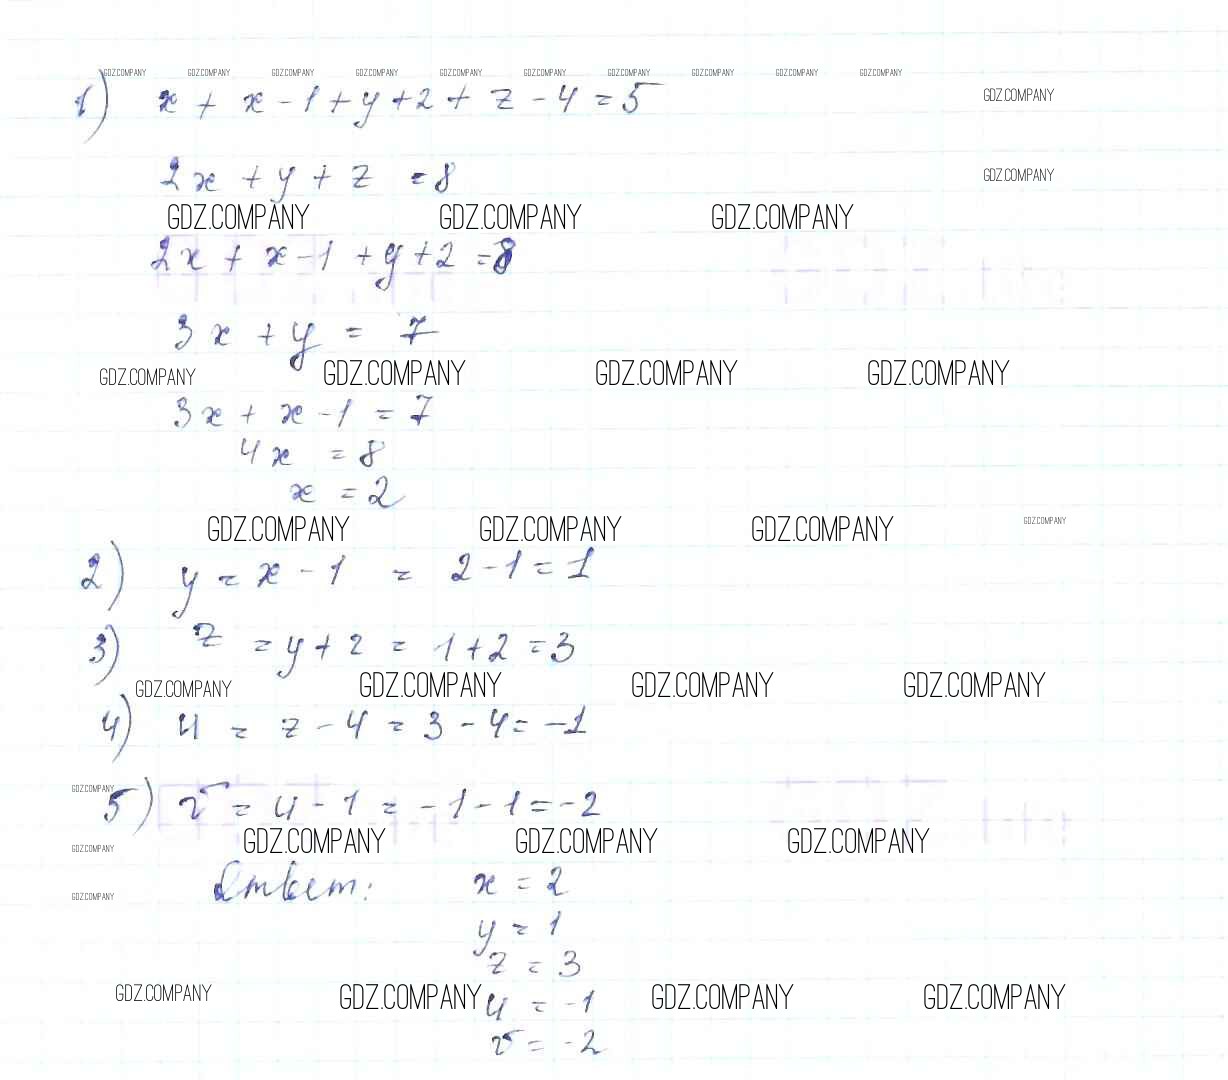 GDZ.COMPANY GDZ.COMPANY GDZ.COMPANY GDZ.COMPANY GDZ.COMPANY GDZ.COMPANY GDZ.COMPANY GDZ.COMPANY GDZ.COMPANY GDZ.COMPANY
1) x + x - 1 + y + 2 + z - 4 = 5 GDZ.COMPANY
2x + y + z = 8 GDZ.COMPANY
GDZ.COMPANY GDZ.COMPANY GDZ.COMPANY
2x + x - 1 + y + 2 = 8
3x + y = 7
GDZ.COMPANY GDZ.COMPANY GDZ.COMPANY GDZ.COMPANY
3x + x - 1 = 7
4x = 8
x = 2
GDZ.COMPANY GDZ.COMPANY GDZ.COMPANY GDZ.COMPANY
2) y = x - 1 = 2 - 1 = 1
3) z = y + 2 = 1 + 2 = 3
GDZ.COMPANY GDZ.COMPANY GDZ.COMPANY GDZ.COMPANY
4) u = z - 4 = 3 - 4 = -1
GDZ.COMPANY
5) v = u - 1 = -1 - 1 = -2
GDZ.COMPANY GDZ.COMPANY GDZ.COMPANY GDZ.COMPANY
Ответ: x = 2
GDZ.COMPANY
y = 1
z = 3
GDZ.COMPANY GDZ.COMPANY GDZ.COMPANY GDZ.COMPANY
u = -1
v = -2